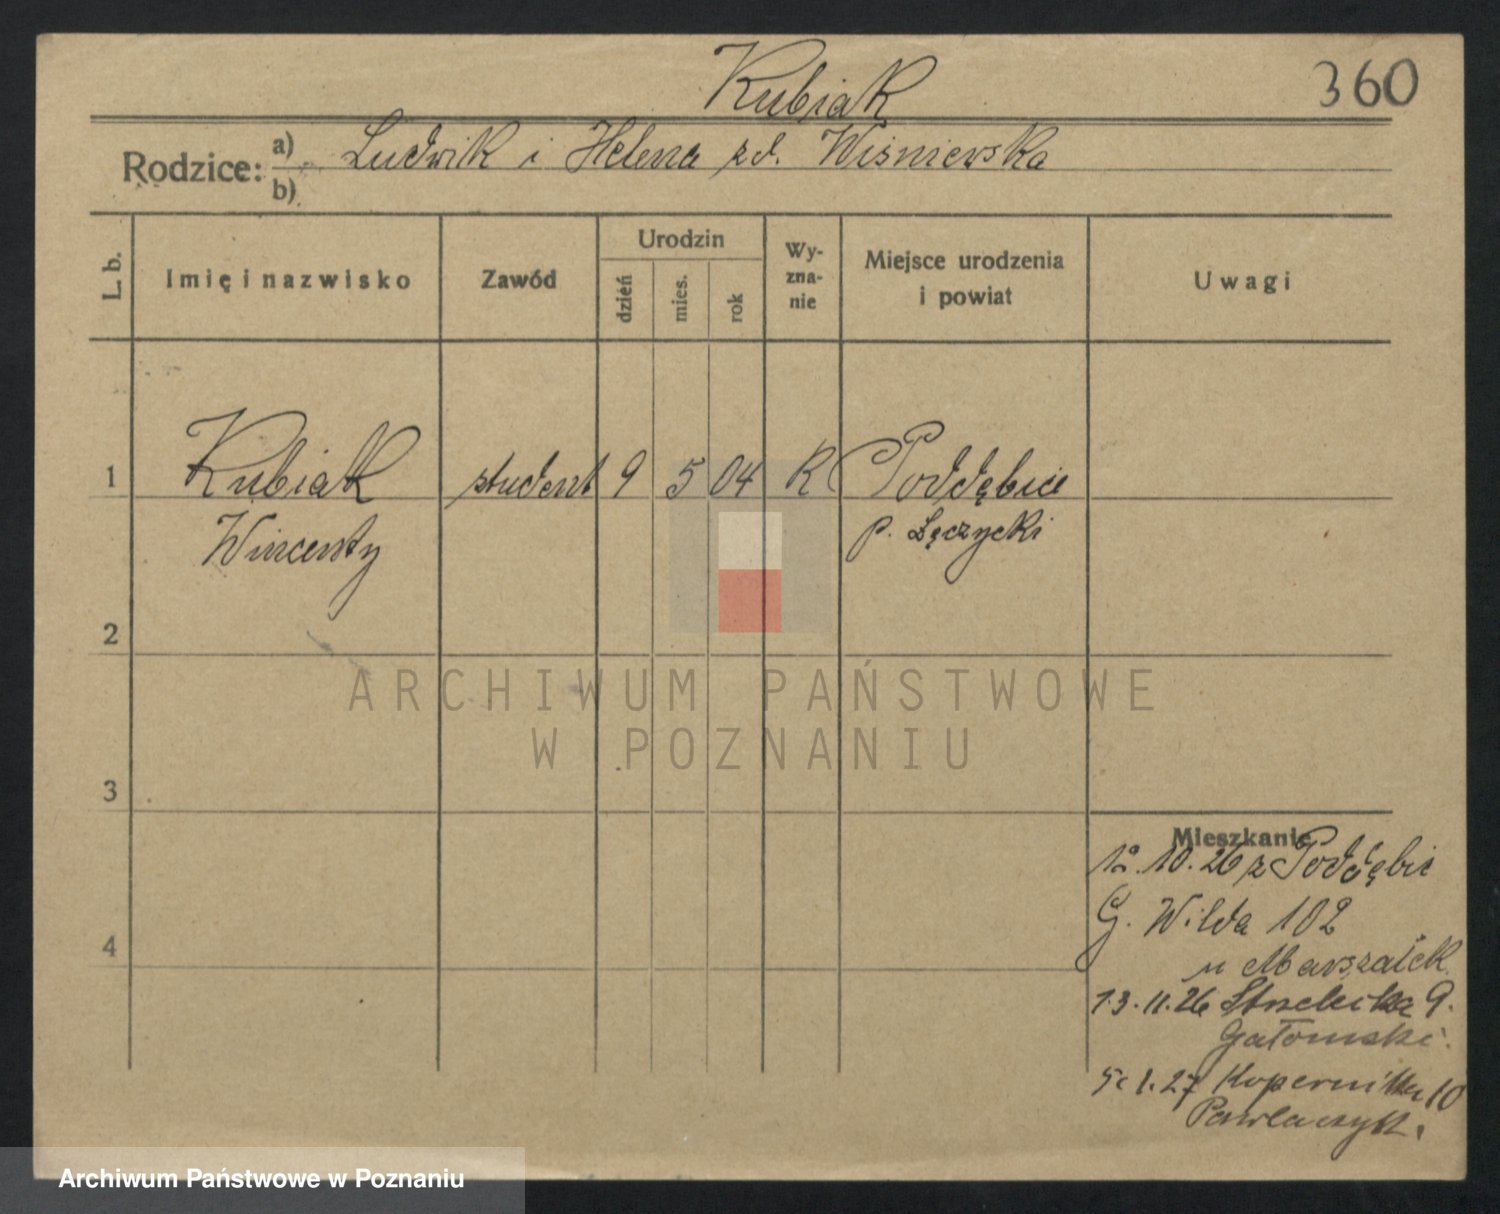 Kubiak
360
Rodzice: a) Ludwik i Helena zd. Wiśniewska
b)
L. b.
Imię i nazwisko
Zawód
Urodzin
dzień
mies.
rok
Wy-
zna-
nie
Miejsce urodzenia
i powiat
Uwagi
1 Kubiak student 9 5 04 R Poddębice
Wincenty p. Łęczycki
2
3
4
Mieszkanie
12.10.26 z Poddębic
G. Wilda 102
u Marszałek
13.11.26 Strzelecka 9.
Gatomski.
5.1.27 Kopernika 10
Pawlaczyk.
ARCHIWUM PAŃSTWOWE
W POZNANIU
Archiwum Państwowe w Poznaniu